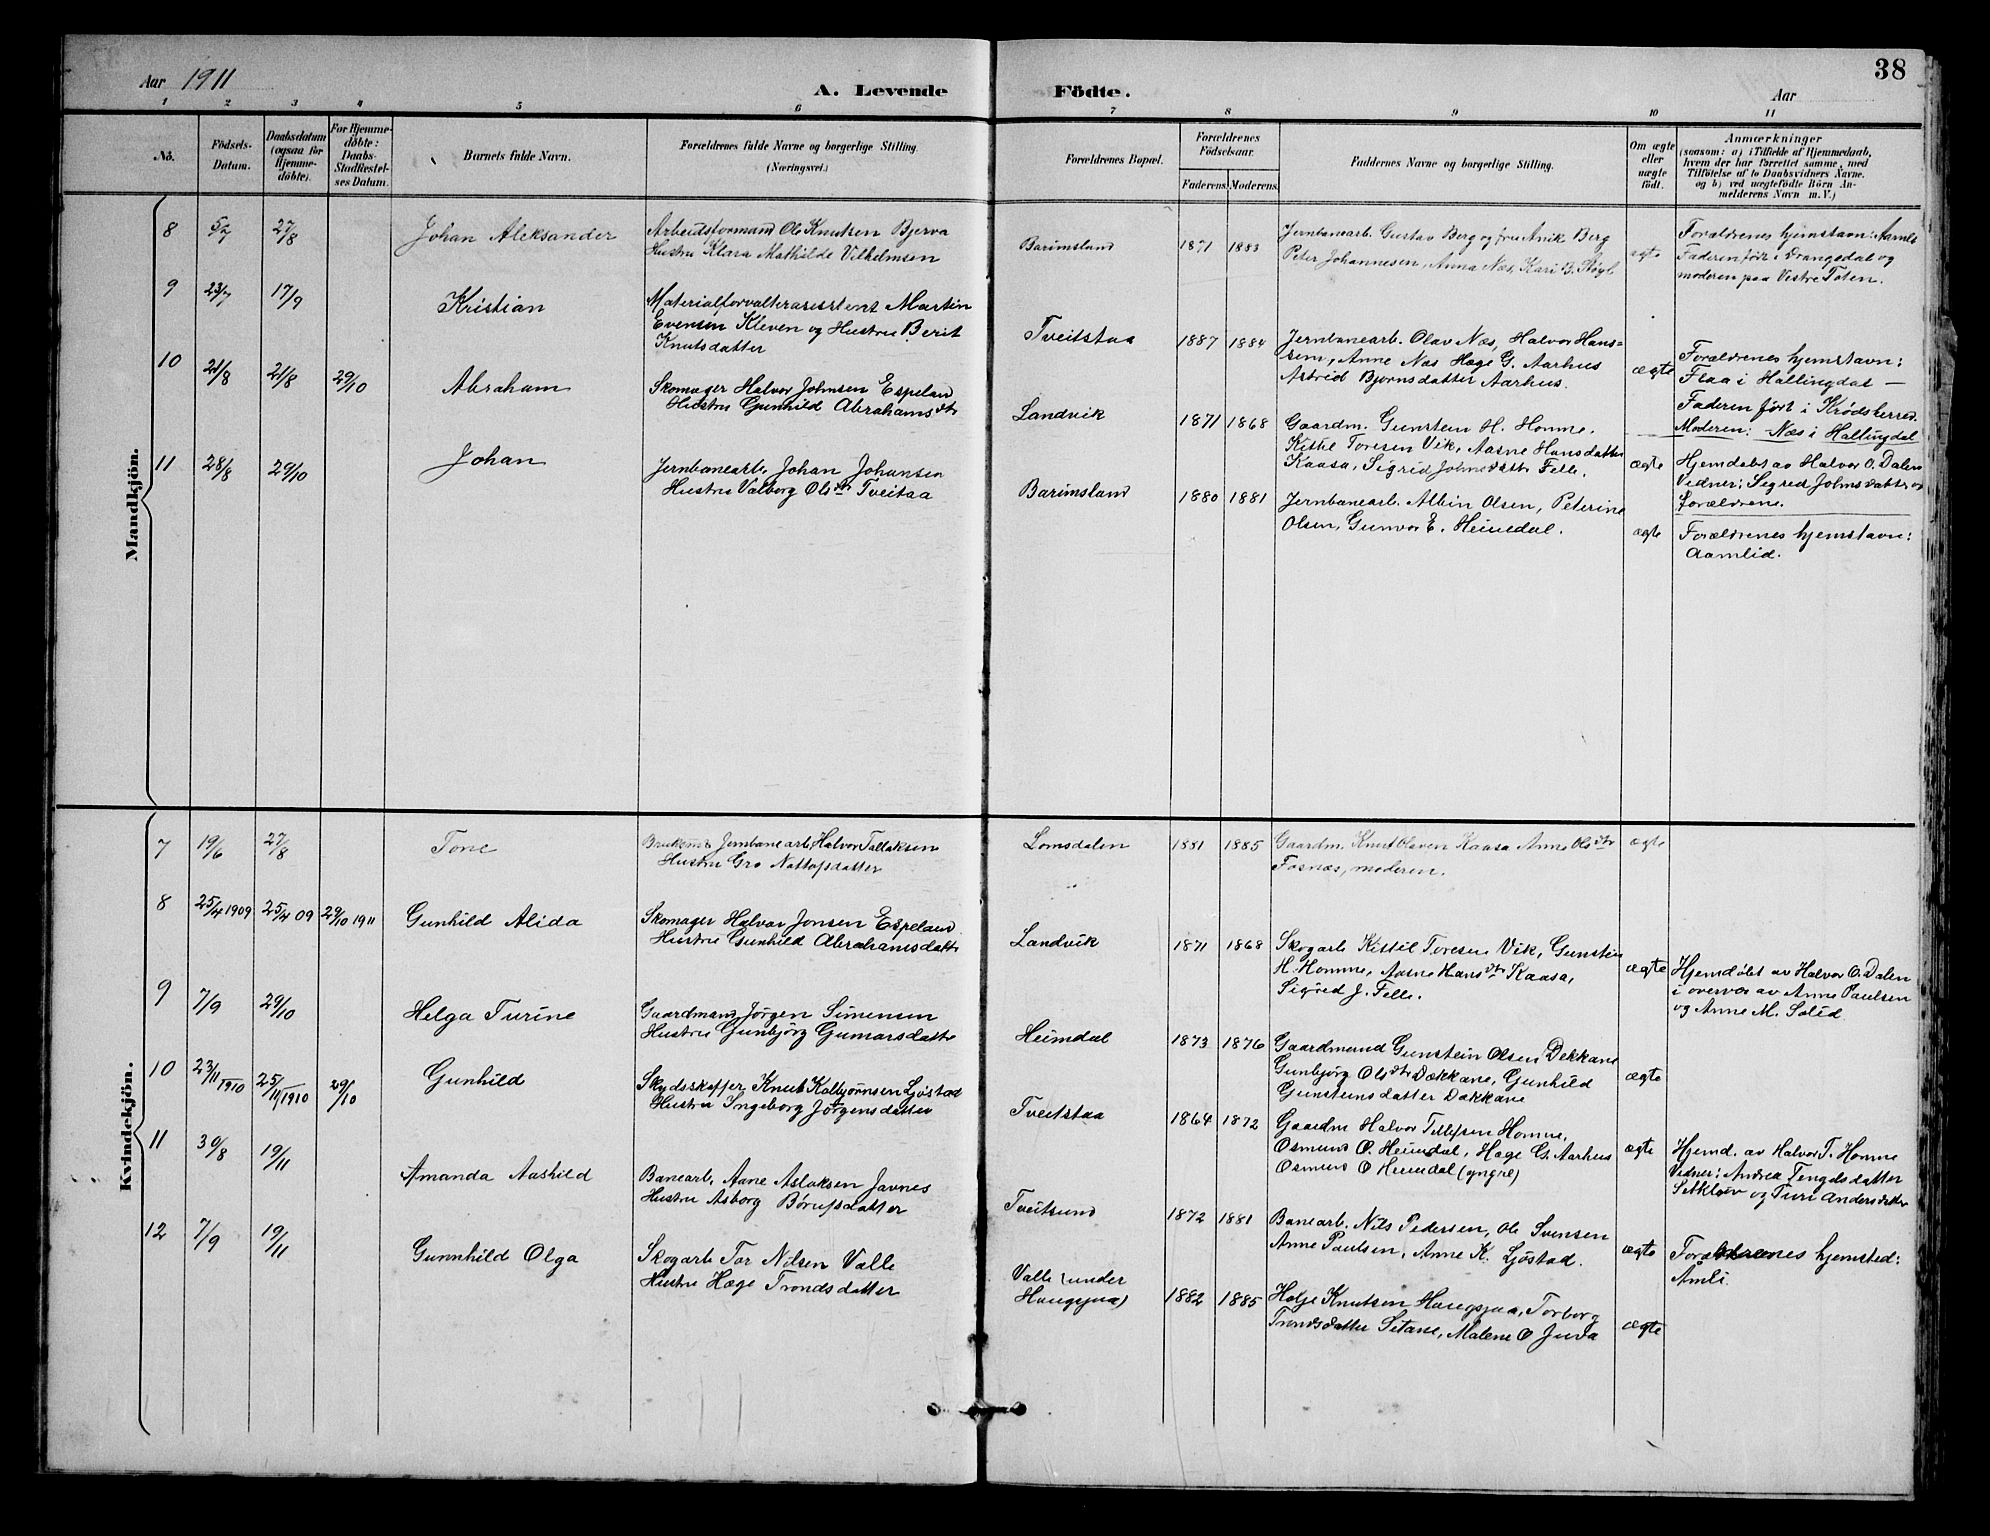 38
Aar 1911
A. Levende
Födte.
Aar
1 2 3 4 5 6 7 8 9 10 11
No.
Födsels-
Datum.
Daabsdatum
(ogsaa for
Hjemme-
döbte).
For Hjemme-
döbte:
Daabs-
Stadfæstel-
ses Datum.
Barnets fulde Navn.
Forældrenes fulde Navne og borgerlige Stilling.
(Næringsvei.)
Forældrenes Bopæl.
Forældrenes
Födselsaar.
Faderens.
Moderens.
Faddernes Navne og borgerlige Stilling.
Om ægte
eller
uægte
födt.
Anmærkninger
(saasom: a) i Tilfælde af Hjemmedaab,
hvem der har forrettet samme, med
Tilföielse af to Daabsvidners Navne.
og b) ved uægtefödte Börn An-
melderens Navn m. V.)
Mandkjön.
8 5/7 27/8 Johan Aleksander
Arbeidsformand Ole Knutsen Bjerva
Hustru Klara Mathilde Vilhelmsen
Barimsland 1871 1883
Jernbanearb. Gustav Berg og fru Anik Berg
Peter Johannesen, Anna Næs, Kari B.
ægte
Forældrenes hjemstavn: Aamli
Faderen født i Drangedal og
moderen paa Vestre Toten.
9 23/7 17/9 Kristian
Materialforvalterassistent Martin
Evensen Kleven og Hustru Berit
Knutsdatter
Tveitstaa 1887 1884
Jernbanearb. Olav Næs, Halvor Hans-
sen, Anne Næs Hæge G. Aarhus
Astrid Bjornsdatter Aarhus.
ægte
Forældrenes hjemstavn:
Flaa i Hallingdal —
Faderen født i Krødsherred
Moderen: Næs i Hallingdal
10 21/8 21/8 29/10 Abraham
Skomager Halvor Johnsen Espeland
Hustru Gunhild Abrahamsdtr
Landvik 1871 1868
Gaardm. Gunstein H. Homme.
Kittil Toresen Vik, Aasne Hansdatter
Kaasa, Sigrid Johnsdtr Felle.
ægte
Hjemdøbt av Halvor O. Dalen
Vidner: Sigred Johnsdatter og
forældrene.
11 28/8 29/10 Johan
Jernbanearb. Johan Johansen
Hustru Valborg Olsdtr Tveitaa
Barimsland 1880 1881
Jernbanearb. Albin Olsen, Peterine
Olsen, Gunvor E. Heimdal.
ægte
Forældrenes hjemstavn:
Aamlid.
Kvindekjön.
7 19/6 27/8 Tone
Jernbanearb. Halvor Tallaksen
Hustru Gro Nattopsdatter
Lomsdalen 1881 1885
Gaardm. Knut Olsven Kaasa Anne Olsdtr
Fosnæs, moderen.
ægte
8 25/4 1909 25/4 09 29/10 1911 Gunhild Alida
Skomager Halvor Jonsen Espeland
Hustru Gunhild Abrahamsdattr
Landvik 1871 1868
Skogarb Kittil Toresen Vik, Gunstein
H. Homme, Aasne Hansdtr Kaasa,
Sigred J. Felle.
ægte
Hjemdøbt av Halvor O. Dalen
i overvær av Anne Paulsen
og Anne M. Solid.
9 7/9 29/10 Helga Turine
Gaardmand Jørgen Simensen
Hustru Gunbjörg Gunnarsdattr
Heimdal 1873 1876
Gaardmand Gunstein Olsen Dekkane
Gunbjörg Olsdtr Dækkane, Gunhild
Gunsteinsdatter Dækkane
ægte
10 23/11 1910 25/11 1910 29/10 Gunhild
Skydsskaffer Knut Kolbjörnsen Ljöstad
Hustru Ingeborg Jörgensdatter
Tveitstaa 1864 1872
Gaardm Halvor Tellefsen Homme,
Osmund O. Heimdal, Hæge G. Aarhus
Osmund O Heimdal (yngre)
ægte
Hjemd. av Halvor T. Homme
Vidner: Andrea Tengelsdatter
Setkleiv og Turi Andersdatter
11 30/8 19/11 Amanda Aashild
Banearb. Aane Aslaksen Javnes
Hustru Asborg Börufsdatter
Tveitsund 1872 1881
Banearb. Nils Pedersen, Ole Svensen
Anne Paulsen, Anne K. Ljöstad.
ægte
Forældrenes hjemsted:
Åmli.
12 7/9 19/11 Gunnhild Olga
Skogarb Tor Nilsen Valle
Hustru Hæge Trondsdatter
Valle (under
Haugsjaa) 1882 1885
Holje Knutsen Haugsjaa, Torborg
Trondsdatter Setane, Malene O Juva
ægte